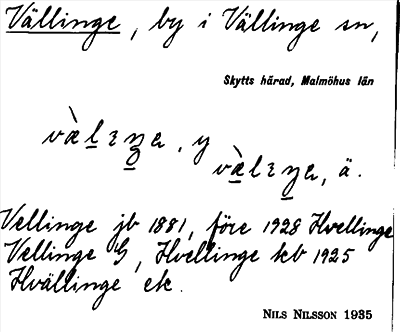 Vällinge, by i Vällinge sn,
Skytts härad, Malmöhus län
, y
, ä.
Vellinge jb 1881, före 1928 Hvellinge
Vellinge G, Hvellinge kb 1925
Hvällinge etc.
NILS NILSSON 1935